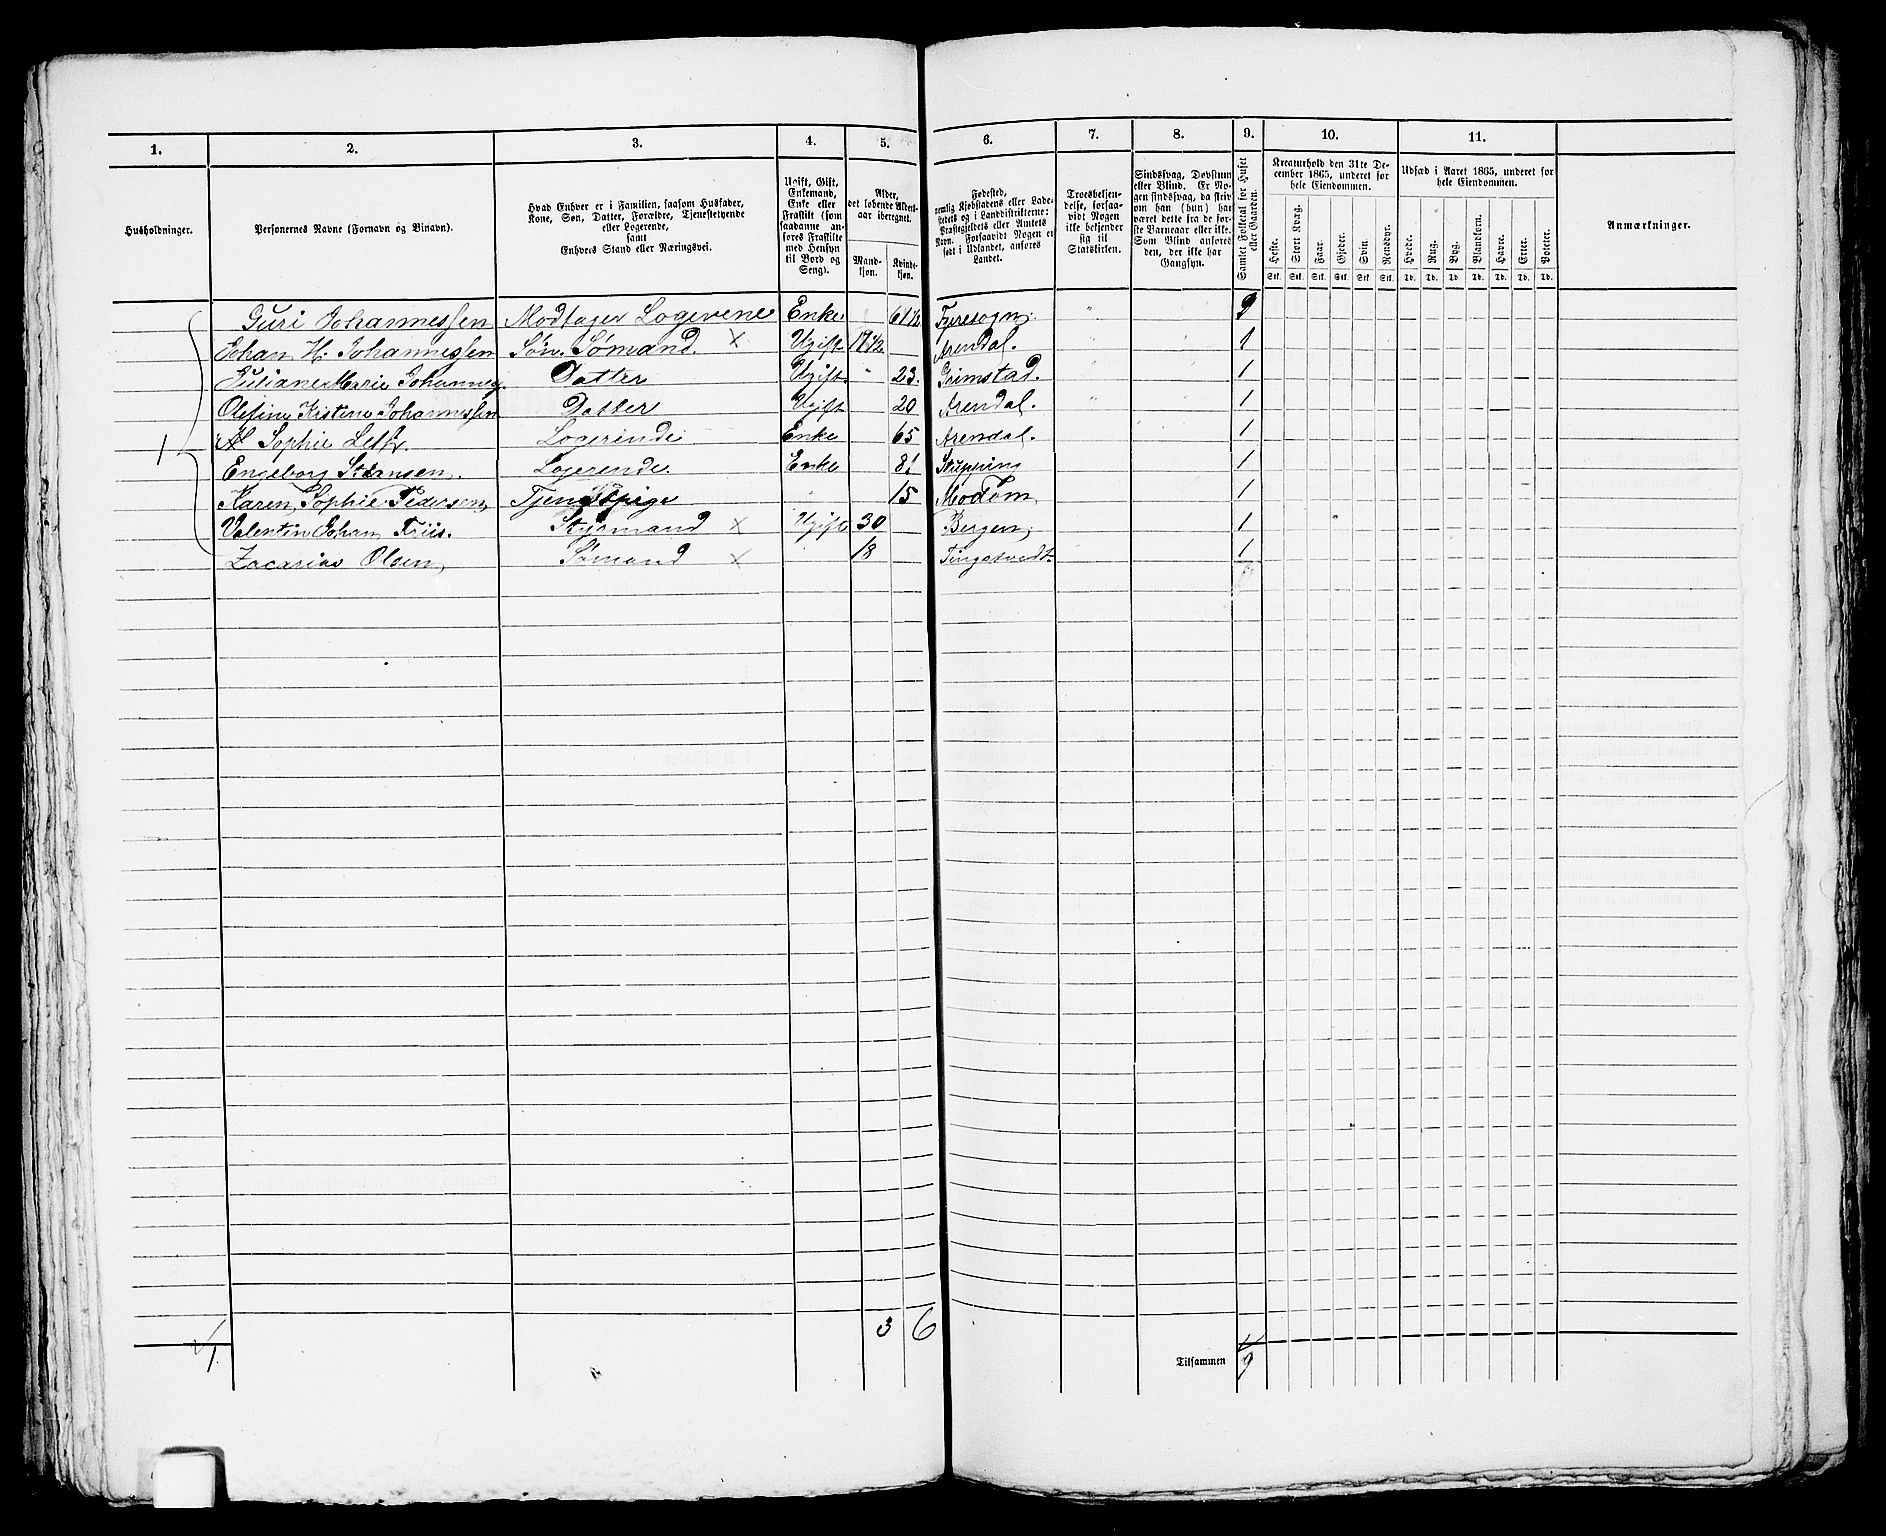 1. 2. 3. 4. 5. 6. 7. 8. 9. 10. 11.
Husholdninger.
Personernes Navne (Fornavn og Binavn).
Hvad Enhver er i Familien, saasom Husfader, Kone, Søn, Datter, Forældre, Tjenestetyende eller Logerende, samt Enhvers Stand eller Næringsvei.
Ugift, Gift, Enkemand, Enke eller Fraskilt (som saadanne anføres Fraskilte med Hensyn til Bord og Seng).
Alder, det løbende Aldersaar iberegnet.
Mandkjøn. Kvindekjøn.
Fødested, nemlig Kjøbstadens eller Ladestedets og i Landdistrikterne: Præstegjeldets eller Amtets Navn. Forsaavidt Nogen er født i Udlandet, anføres Landet.
Troesbekjendelse, forsaavidt Nogen ikke bekjender sig til Statskirken.
Sindssvag, Døvstum eller Blind. Er Nogen sindssvag, da skrives om han (hun) har været dette fra de første Barneaar eller ikke. Som Blind anføres den, der ikke har Gangsyn.
Samlet Folketal for Huset eller Gaarden.
Kreaturhold den 31te December 1865, underet for hele Eiendommen.
Heste. Stort Kvæg. Faar. Gjeder. Svin. Rensdyr.
Stk. Stk. Stk. Stk. Stk. Stk.
Udsæd i Aaret 1865, underet for hele Eiendommen.
Hvede. Rug. Byg. Blandkorn. Havre. Erter. Poteter.
Td. Td. Td. Td. Td. Td. Td.
Anmærkninger.
Guri Johannessen Modtager Logerene Enke 61½ Fyresogn 9
Johan H. Johannessen Søn. Sømand. × Ugift 17½ Arendal. 1
Juliane Marie Johannes. Datter Ugift " 23. Grimstad. 1
Olefine Kistene Johannessen Datter Ugift 20 Arendal. 1
1 Sophie Enke 65 Arendal. 1
Engeborg Logerende Enke 81 1
Karen Sophie Pedersen Tjenestpige 15 Modom 1
Valentin Johan Friis. Styrmand × Ugift 30 Bergen 1
Zacarias Olsen Sømand × 18 Tingstvedt 1
3 6
1. Tilsammen 9